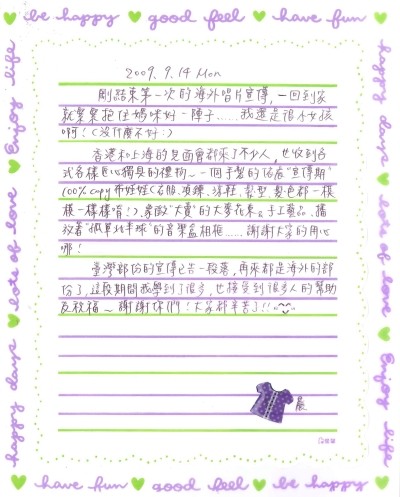 be happy ♥ good feel ♥ have fun ♥
happy days
Enjoy life
lots of love
2009. 9. 14 Mon
剛結束第一次的海外唱片宣傳,一回到家
就緊緊抱住媽咪好一陣子……我還是很小女孩
啊!(沒什麼不好:)
香港和上海的見面會都來了不少人,也收到各
式各樣
獨具的禮物~一個手製的
"宣傳期"
100% copy 布娃娃(衣服、項鍊、
鞋、髮型、髮色都一模
一樣
唷!)、象徵"大賣"的大麥花束&手工藝品、播
放著"孤單北半球"的音樂盒相框……謝謝大家的用心
哪!
臺灣部份的宣傳已告一段落,再來都是海外的部
份了,這段期間我學到了很多,也接受到很多人的幫助
及祝福~謝謝你們!大家都辛苦了!!
晨
happy days
lots of love
Enjoy life
♥ have fun ♥ good feel ♥ be happy